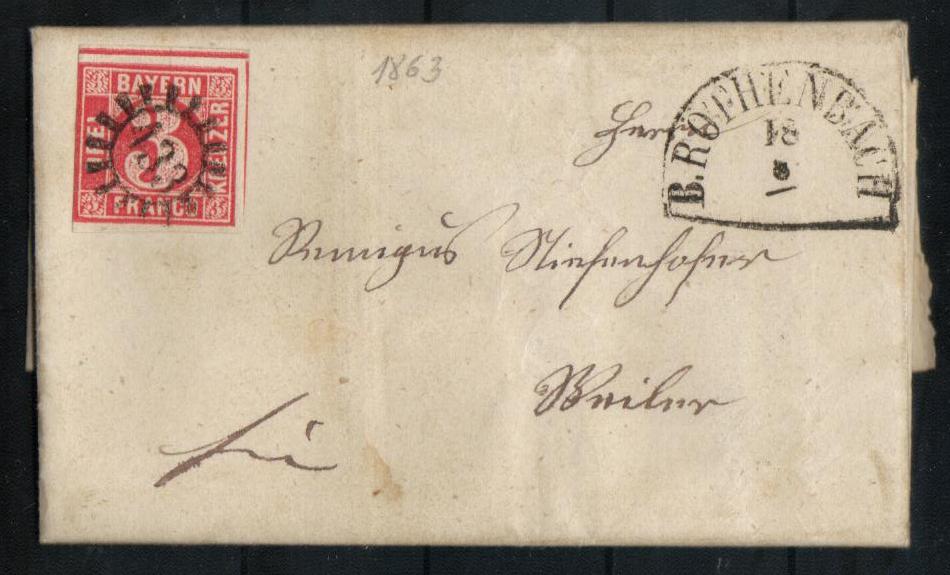 1863
BAYERN
DREI
3
KREUZER
FRANCO
B. ROTHENBACH
18
8
Herrn
Remigus Stiefenhofer
Weiler